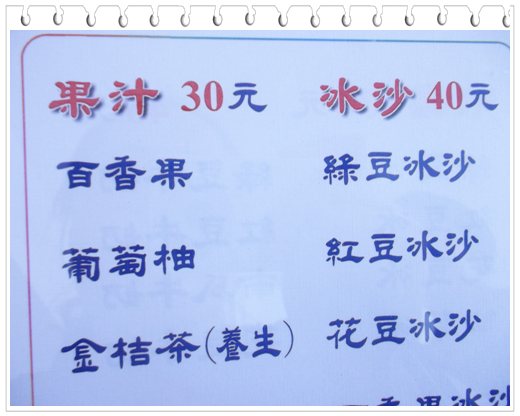 果汁 30元
百香果
葡萄柚
金桔茶(養生)
冰沙 40元
綠豆冰沙
紅豆冰沙
花豆冰沙
香果冰沙